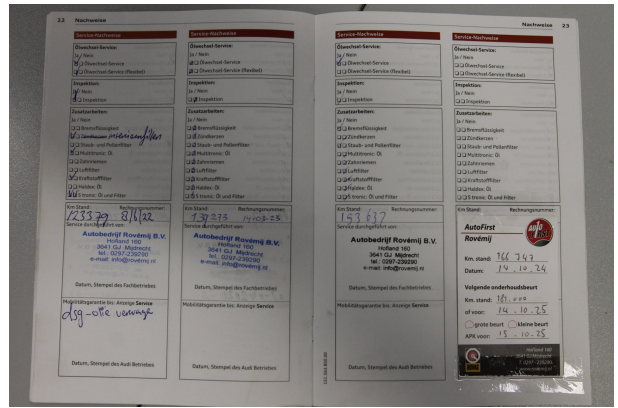 22 Nachweise
Service-Nachweise
Ölwechsel-Service:
Ja / Nein
Ölwechsel-Service
Ölwechsel-Service (flexibel)
Inspektion:
Ja / Nein
Inspektion
Zusatzarbeiten:
Ja / Nein
Bremsflüssigkeit
Zündkerzen
Staub- und Pollenfilter
Multitronic: Öl
Zahnriemen
Luftfilter
Kraftstofffilter
Haldex: Öl
S tronic: Öl und Filter
Km Stand: Rechnungsnummer:
123379 8/6/22
Service durchgeführt von:
Autobedrijf Rovémij B.V.
Hofland 160
3641 GJ Mijdrecht
tel.: 0297-239290
e-mail: info@rovemij.nl
Datum, Stempel des Fachbetriebes
Mobilitätsgarantie bis: Anzeige Service
dsg-olie
Datum, Stempel des Audi Betriebes
Service-Nachweise
Ölwechsel-Service:
Ja / Nein
Ölwechsel-Service
Ölwechsel-Service (flexibel)
Inspektion:
Ja / Nein
Inspektion
Zusatzarbeiten:
Ja / Nein
Bremsflüssigkeit
Zündkerzen
Staub- und Pollenfilter
Multitronic: Öl
Zahnriemen
Luftfilter
Kraftstofffilter
Haldex: Öl
S tronic: Öl und Filter
Km Stand: Rechnungsnummer:
14-03-23
Service durchgeführt von:
Autobedrijf Rovémij B.V.
Hofland 160
3641 GJ Mijdrecht
tel.: 0297-239290
e-mail: info@rovemij.nl
Datum, Stempel des Fachbetriebes
Mobilitätsgarantie bis: Anzeige Service
Datum, Stempel des Audi Betriebes
Nachweise 23
Service-Nachweise
Ölwechsel-Service:
Ja / Nein
Ölwechsel-Service
Ölwechsel-Service (flexibel)
Inspektion:
Ja / Nein
Inspektion
Zusatzarbeiten:
Ja / Nein
Bremsflüssigkeit
Zündkerzen
Staub- und Pollenfilter
Multitronic: Öl
Zahnriemen
Luftfilter
Kraftstofffilter
Haldex: Öl
S tronic: Öl und Filter
Km Stand: Rechnungsnummer:
153 637
Service durchgeführt von:
Autobedrijf Rovémij B.V.
Hofland 160
3641 GJ Mijdrecht
tel.: 0297-239290
e-mail: info@rovemij.nl
Datum, Stempel des Fachbetriebes
Mobilitätsgarantie bis: Anzeige Service
Datum, Stempel des Audi Betriebes
Service-Nachweise
Ölwechsel-Service:
Ja / Nein
Ölwechsel-Service
Ölwechsel-Service (flexibel)
Inspektion:
Ja / Nein
Inspektion
Zusatzarbeiten:
Ja / Nein
Bremsflüssigkeit
Zündkerzen
Staub- und Pollenfilter
Multitronic: Öl
Zahnriemen
Luftfilter
Kraftstofffilter
Haldex: Öl
S tronic: Öl und Filter
Km Stand: Rechnungsnummer:
AutoFirst
Rovémij
Km. stand: 166.747
Datum: 14.10.24
Volgende onderhoudsbeurt
Km. stand: 181.000
of voor: 14.10.25
grote beurt kleine beurt
APK voor: 15.10.25
Hofland 160
3641 GJ Mijdrecht
T. 0297-239290
www.rovemij.nl